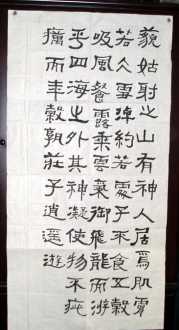 藐姑射之山有神人居焉肌膚
若仌雪淖約若處子不食五穀
吸風餐露乘雲氣御飛龍而游
乎四海之外其神凝使物不疵
癘而年穀孰莊子逍遙遊